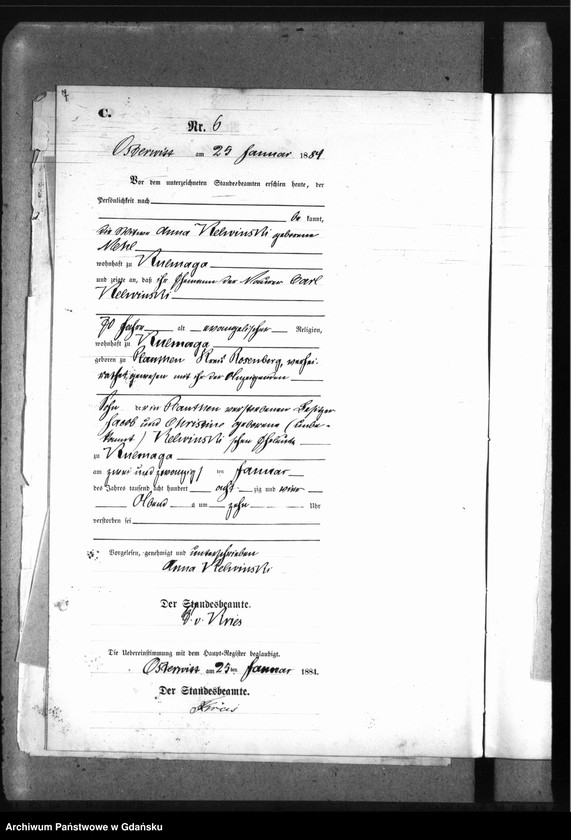 C.
Nr. 6
Osterwitt am 25 Januar 1884
Vor dem unterzeichneten Standesbeamten erschien heute, der
Persönlichkeit nach
be kannt,
die Witwe Anna Klewinski geborene
wohnhaft zu
und zeigte an, daß ihr Ehemann der Maurer Carl
Klewinski
70 Jahre alt evangelischer Religion,
wohnhaft zu
geboren zu Plauthen Kreis Rosenberg, verhei-
rathet gewesen mit ihr der Anzeigenden
Sohn der in Plauthen verstorbenen Besitzer
Jacob und Christine geborene (unbe-
kannt) Klewinski schen Eheleute
zu
am zwei und zwanzig ten Januar
des Jahres tausend acht hundert acht zig und vier
Abend s um zehn Uhr
verstorben sei
Vorgelesen, genehmigt und unterschrieben
Anna Klewinski
Der Standesbeamte.
v. Kries
Die Uebereinstimmung mit dem Haupt-Register beglaubigt.
Osterwitt am 25 ten Januar 1884.
Der Standesbeamte.
Kries
Archiwum Państwowe w Gdańsku